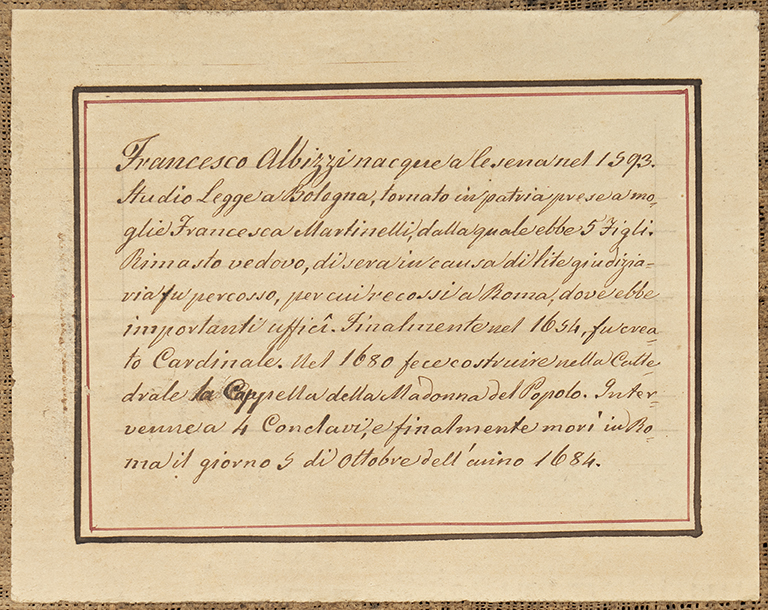 Francesco Albizzi nacque a Cesena nel 1593.
Studio Legge a Bologna, tornato in patria prese a mo-
glie Francesca Martinelli, dalla quale ebbe 5 Figli.
Rimasto vedovo, di sera in causa di lite giudizia-
ria fu percosso, per cui recossi a Roma, dove ebbe
importanti ufficî. Finalmente nel 1654, fu crea-
to Cardinale. Nel 1680 fece costruire nella Catte-
drale la Cappella della Madonna del Popolo. Inter-
venne a 4 Conclavi, e finalmente morì in Ro-
ma il giorno 5 di Ottobre dell'anno 1684.